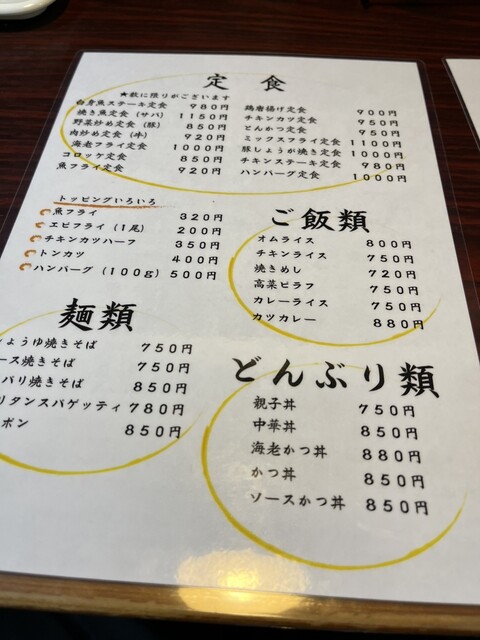 定 食
★飲に限りがございます
白身魚ステーキ定食 980円
焼き魚定食(サバ) 1150円
野菜炒め定食(豚) 850円
肉炒め定食(牛) 920円
海老フライ定食 1000円
コロッケ定食 850円
魚フライ定食 920円
鶏唐揚げ定食 900円
チキンカツ定食 950円
とんかつ定食 950円
ミックスフライ定食 1100円
豚しょうが焼き定食 1000円
チキンステーキ定食 980円
ハンバーグ定食 1000円
トッピングいろいろ
魚フライ 320円
エビフライ(1尾) 200円
チキンカツハーフ 350円
トンカツ 400円
ハンバーグ(100g) 500円
ご飯類
オムライス 800円
チキンライス 750円
焼きめし 720円
高菜ピラフ 750円
カレーライス 750円
カツカレー 880円
麺類
しょうゆ焼きそば 750円
ース焼きそば 750円
バリ焼きそば 850円
リタンスパゲッティ 780円
ポン 850円
どんぶり類
親子丼 750円
中華丼 850円
海老かつ丼 880円
かつ丼 850円
ソースかつ丼 850円